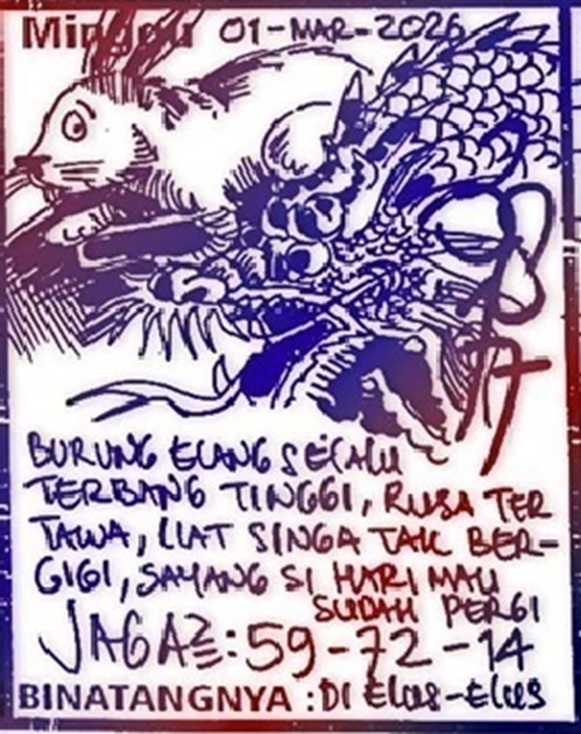 Minggu 01-MAR-2026
BURUNG ELANG SELALU
TERBANG TINGGI, RUSA TER
TAWA, LIAT SINGA TAK BER-
GIGI, SAYANG SI HARI MAU
SUDAH PERGI
JAGA2: 59-72-14
BINATANGNYA : DI Elus-Elus